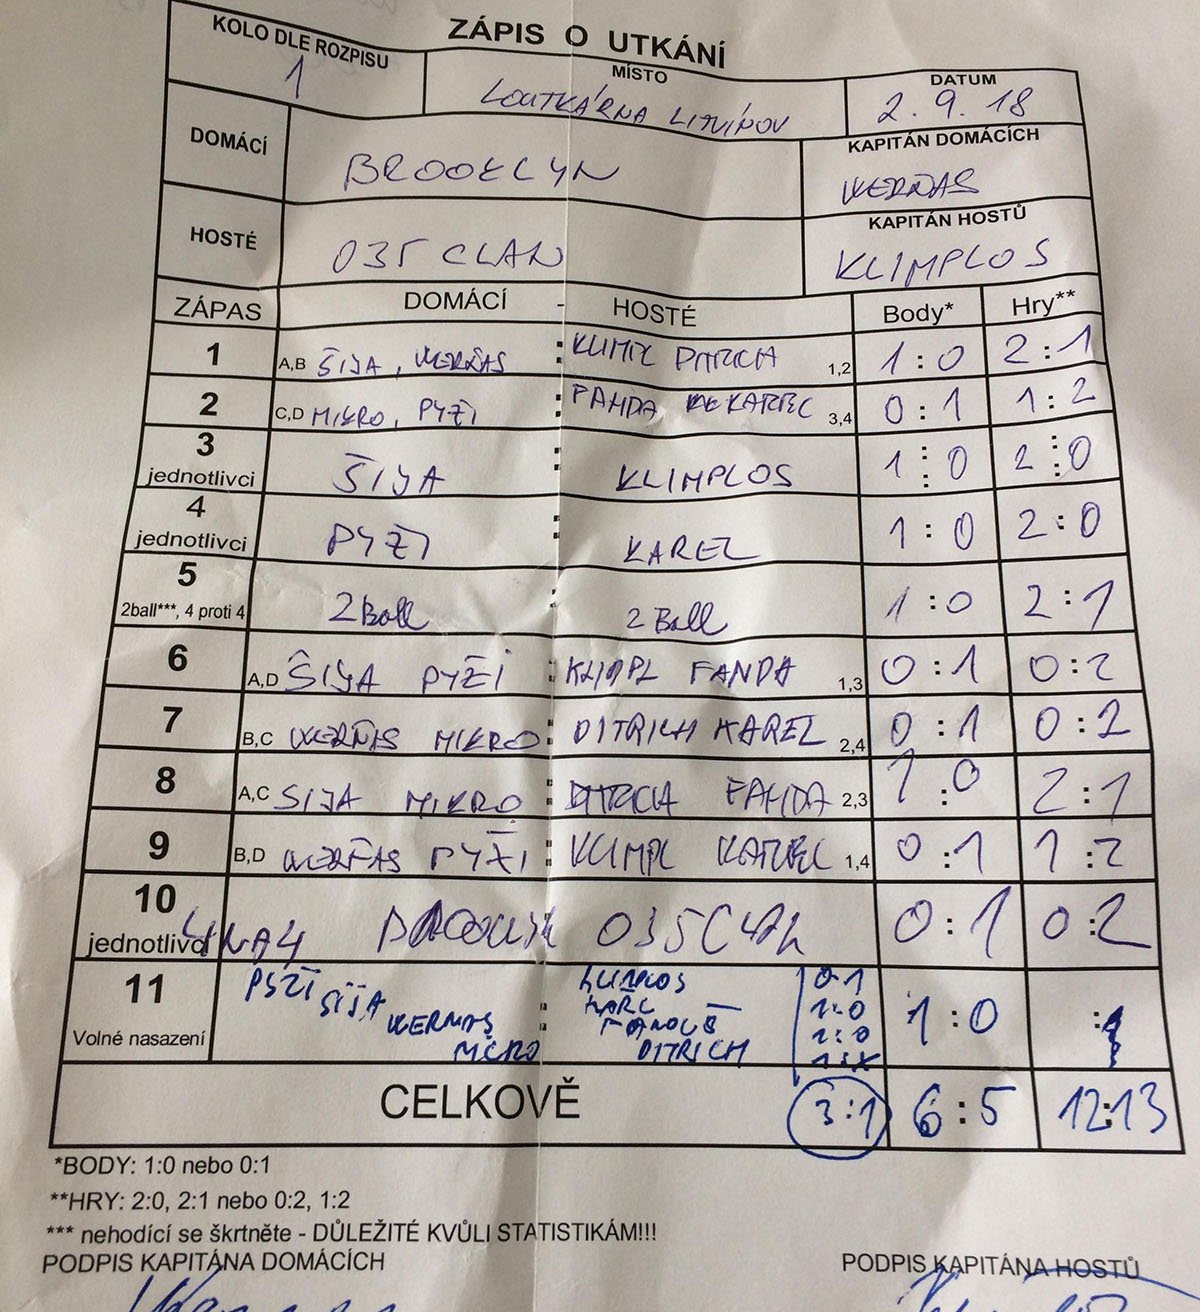 ZÁPIS O UTKÁNÍ
KOLO DLE ROZPISU
1
MÍSTO
LOUTKÁRNA LITVÍNOV
DATUM
2. 9. 18
DOMÁCÍ
BROOKLYN
KAPITÁN DOMÁCÍCH
WERŇAS
HOSTÉ
035 CLAN
KAPITÁN HOSTŮ
KLIMPLOS
ZÁPAS DOMÁCÍ - HOSTÉ Body* Hry**
1 A,B ŠIJA, WERŇAS : KLIMPL DITRICH 1,2 1:0 2:1
2 C,D MIKRO, PYŽI : FANDA KAREL 3,4 0:1 1:2
3 jednotlivci ŠIJA : KLIMPLOS 1:0 2:0
4 jednotlivci PYŽI : KAREL 1:0 2:0
5 2ball***, 4 proti 4 2Ball : 2Ball 1:0 2:1
6 A,D ŠIJA PYŽI : KLIMPL FANDA 1,3 0:1 0:2
7 B,C WERŇAS MIKRO : DITRICH KAREL 2,4 0:1 0:2
8 A,C SIJA MIKRO : DITRICH FANDA 2,3 1:0 2:1
9 B,D WERŇAS PYŽI : KLIMPL KAREL 1,4 0:1 1:2
10 jednotlivci 4 NA 4 BROOKLYN 035 CLAN 0:1 0:2
11 Volné nasazení : 1:0 :
PYŽI KLIMPLOS 0:1
ŠIJA KAREL 1:0
WERNAS FANOUŠ 1:0
MIKRO DITRICH
CELKOVĚ 3:1 6:5 12:13
*BODY: 1:0 nebo 0:1
**HRY: 2:0, 2:1 nebo 0:2, 1:2
*** nehodící se škrtněte - DŮLEŽITÉ KVŮLI STATISTIKÁM!!!
PODPIS KAPITÁNA DOMÁCÍCH
PODPIS KAPITÁNA HOSTŮ